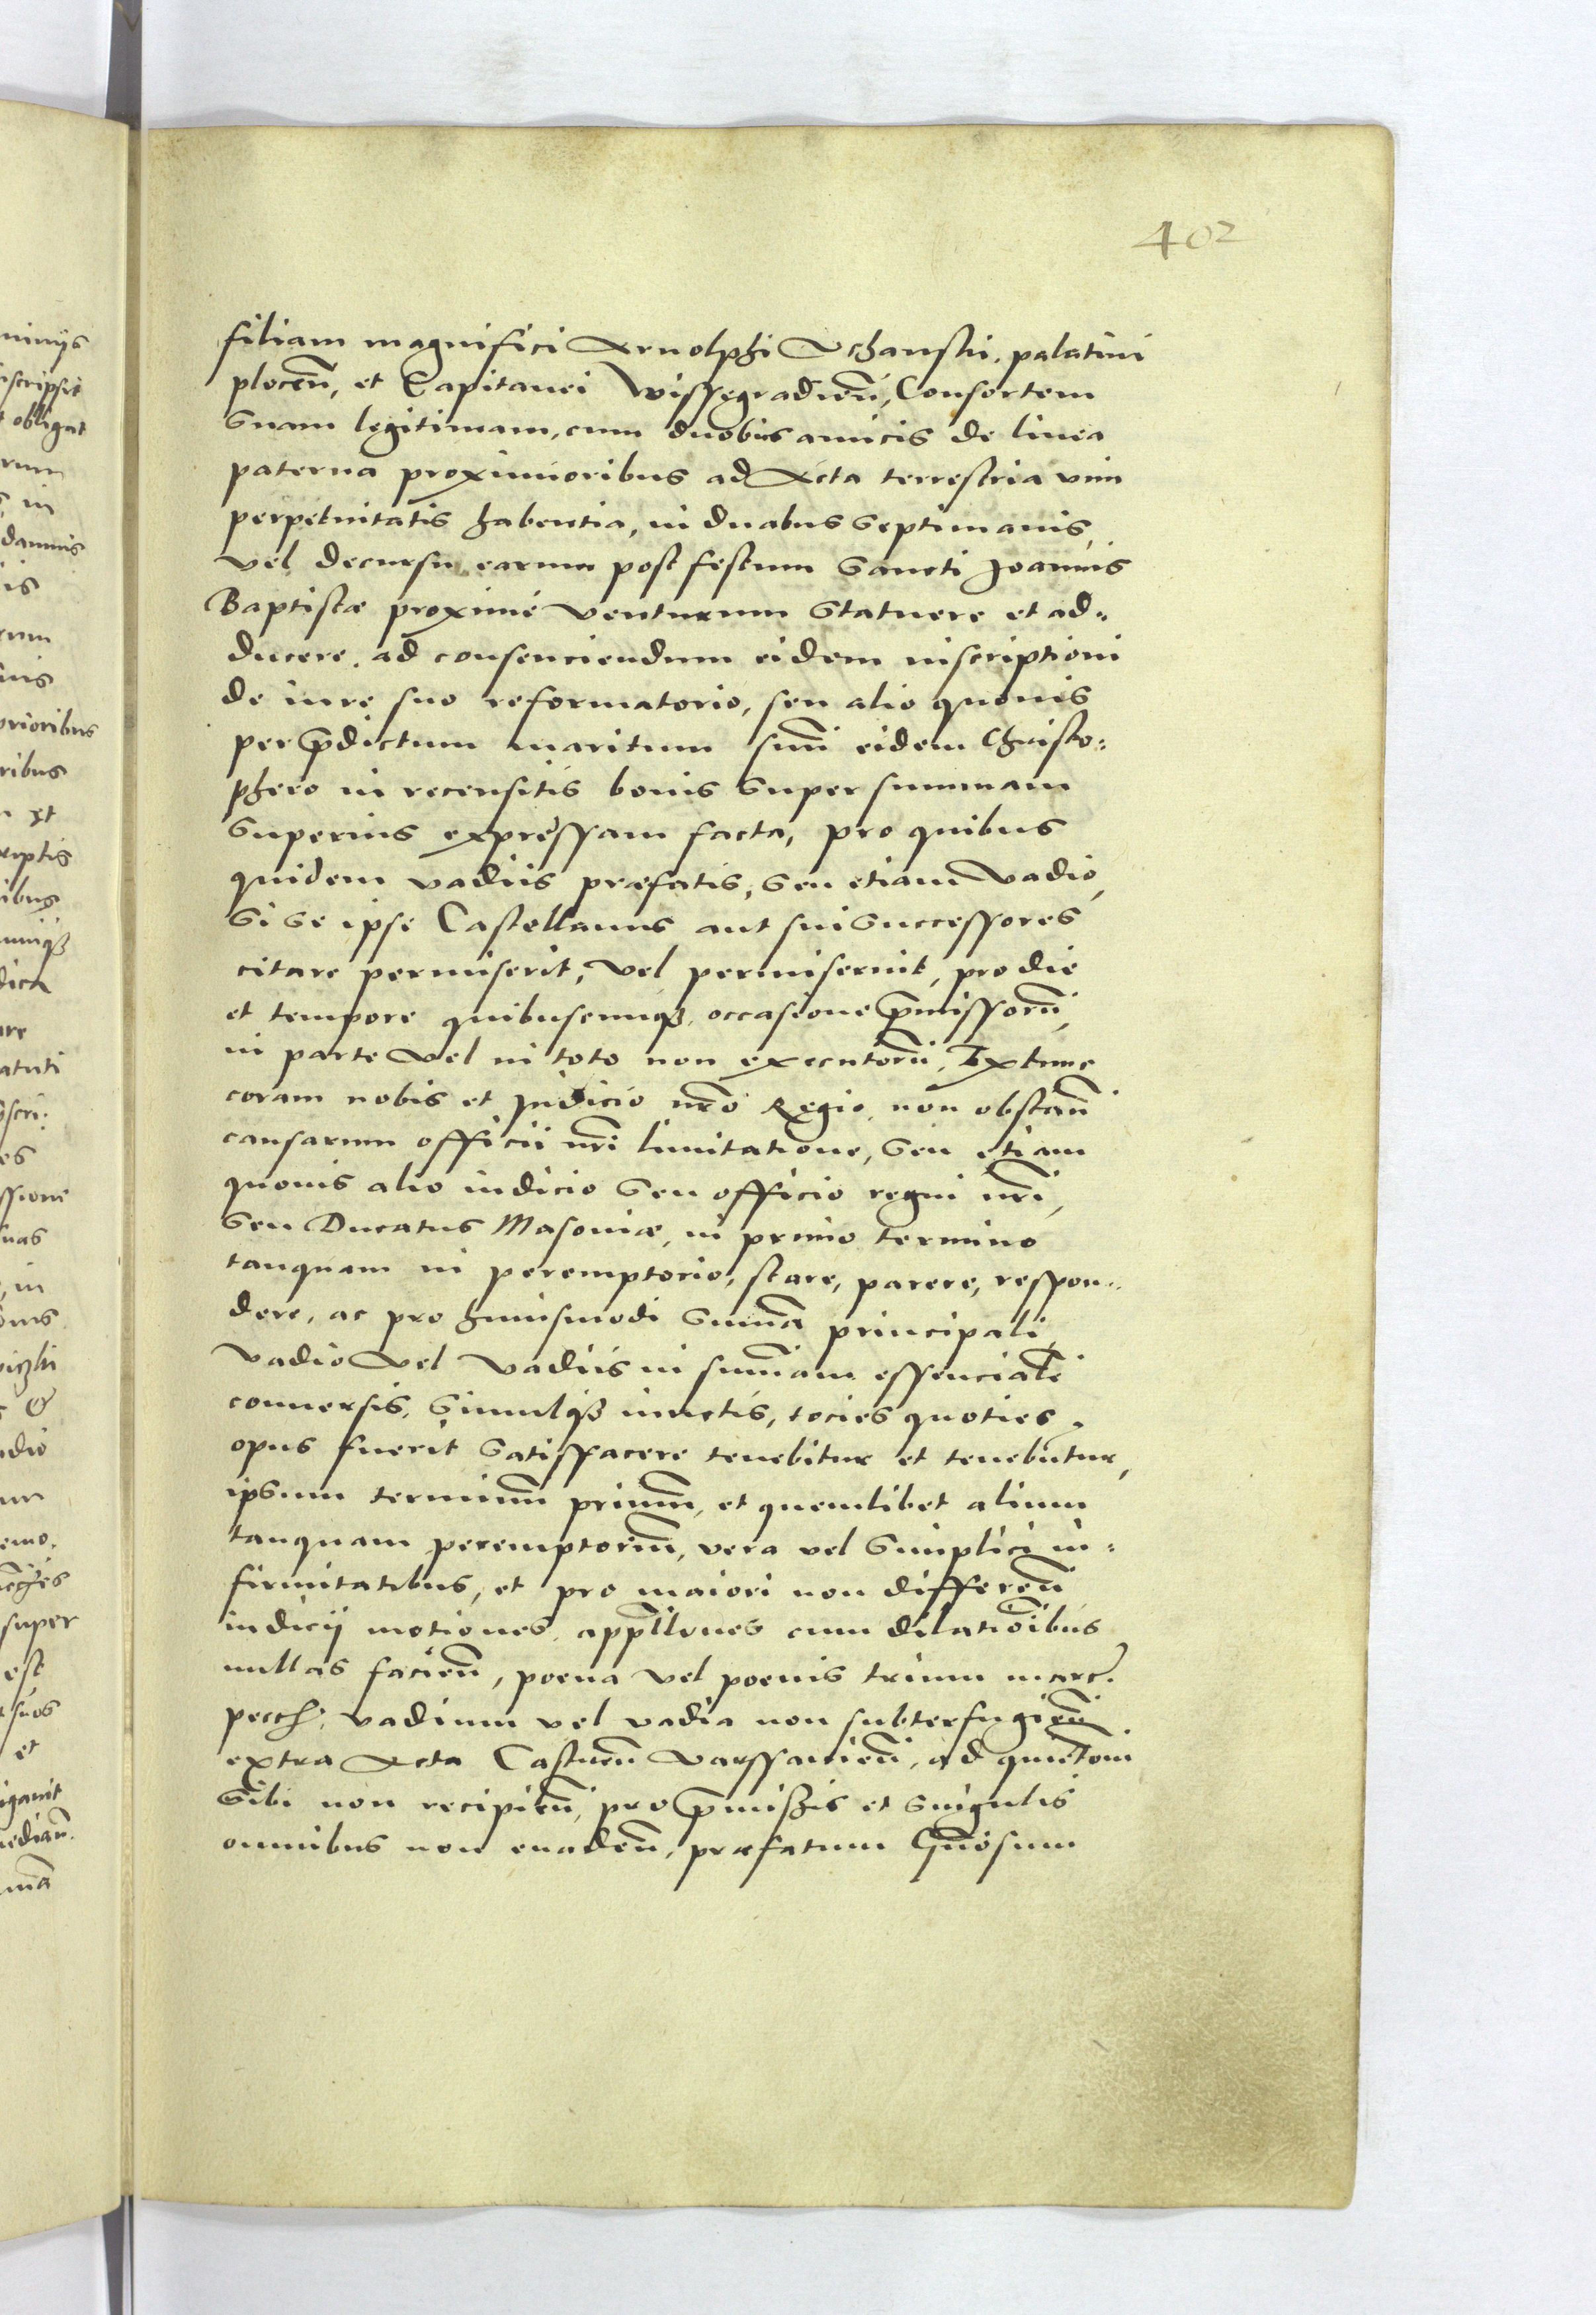 402
filiam magnifici Arnolphi Uchanski, palatini
plocen̄, et Capitanei Wissegradien̄, Consortem
suam legitimam, cum duobus amicis de linea
paterna proximioribus ad Acta terrestria vim
perpetuitatis habentia, in duabus septimanis,
vel decursu earum post festum Sancti Joannis
Baptistæ proximé venturum statuere et ad=
ducere, ad consenciendum eidem inscriptioni
de iure suo reformatorio, seu alio quouis
per p̄dictum maritum suū eidem Christo=
phero in recensitis bonis super summam
superius expressam facta, pro quibus
quidem vadiis præfatis, seu etiam vadio,
si se ipse Castellanus aut sui successores
citare permiserit, vel permiserint, pro die
et tempore quibuscunqꝫ occasione p̄missorū,
in parte vel in toto non executorū, Extunc
coram nobis et Judicio nr̄o Regio, non obstan̄
causarum officii nr̄i limitatione, seu etiam
quouis alio iudicio seu officio regni nr̄i,
seu Ducatus Masouiæ, in primo termino
tanquam in peremptorio, stare, parere, respon=
dere, ac pro huiusmodi sum̄a principali,
vadio vel vadiis in sum̄am essencialē
conuersis, simulqꝫ iunctis, tocies quoties
opus fuerit satisfacere tenebitur et tenebūtur,
ipsum terminū primū, et quemlibet alium
tanquam peremptoriū, vera vel simplici in=
firmitatibus, et pro maiori non differen̄
iudicij motiones, app̄llones cum dilatiōibus
nullas facien̄, poena vel poenis trium marc.
pecch, vadium vel vadia non subterfugien̄
extra Acta Castren̄ Varssauien̄, ad quietōni
sibi non recipien̄, pro p̄missis et singulis
omnibus non euaden̄, præfatum Gn̄osum